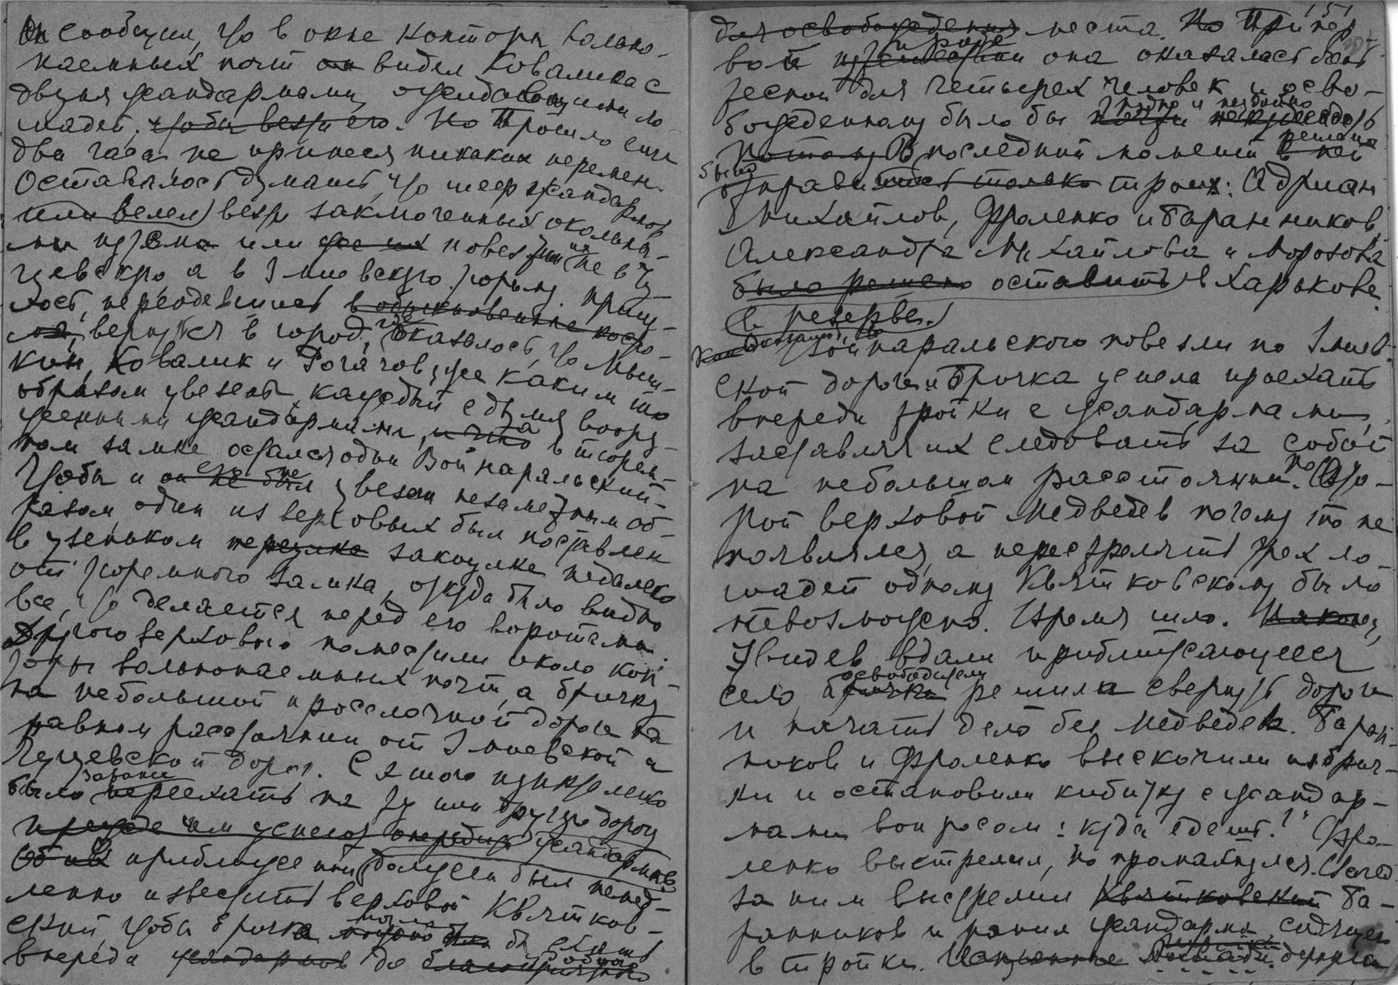 Он сообщил, что в окне конторы вольно-
наемных почт он видел Ковалика с
двумя жандармами, ожидавшими ло-
шадей, чтобы везти его. Но прошло еще
два часа не принеся никаких перемен.
Оставалось думать, что шеф жандармов
или велел везти заключенных окольны-
ми путями или повезли их не в Чу-
гуевскую а в Змиевскую тюрьму. Приш-
лось, переодевшись в обыкновенные костю-
мы, вернуться в город, где оказалось, что Мыш-
кин, Ковалик и Рогачов уже каким то
образом увезены каждый с двумя воору-
женными жандармами, и что в тюрем-
ном замке остался один Войнаральский.
Чтобы и он не был увезен незаметным об-
разом один из верховых был поставлен
в узеньком переулке закоулке недалеко
от тюремного замка, откуда было видно
все, что делается перед его воротами.
Другого верхового поместили около кон-
торы вольнонаемных почт, а бричку
на небольшой проселочной дороге на
равном расстоянии от Змиевской и
Чугуевской дорог. С этого пункта легко
было заранее переехать на ту или другую дорогу
прежде чем успеют опередить жандармы
Об их приближении должен был немед-
ленно известить верховой Квятков-
ский, чтобы бричка могла бы ехать
впереди жандармов до
для освобождения места. Но При пер-
вой она оказалась слиш-
тесной для четырех человек и осво-
божденному было бы трудно и неудобно
В последний момент решено
было отправить только троих: Адриан
Михайлов, Фроленко и Баранников,
Александра Михайлова и Морозова
было решено оставить в Харькове
в резерве.
Войнаральского повезли по Змиев-
ской дороге и бричка успела проехать
впереди тройки с жандармами,
заставляя их следовать за собой
на небольшом расстоянии. Но вто-
рой верховой Медведев почему то не
появлялся, а перестрелять трех ло-
шадей одному Квятковскому было
невозможно. Время шло. Наконец,
Увидев вдали приближающееся
село, освободители бричка решила свернуть дороги
и начать дело без Медведева. Баран-
ников и Фроленко выскочили из брич-
ки и остановили кибитку с жандар-
мами вопросом: "куда едешь?" Фро-
ленко выстрелил, но промахнулся. Вслед
за ним выстрелил Квятковский Ба-
ранников и ранил жандарма, сидящего
в тройке. Испуганные лошади